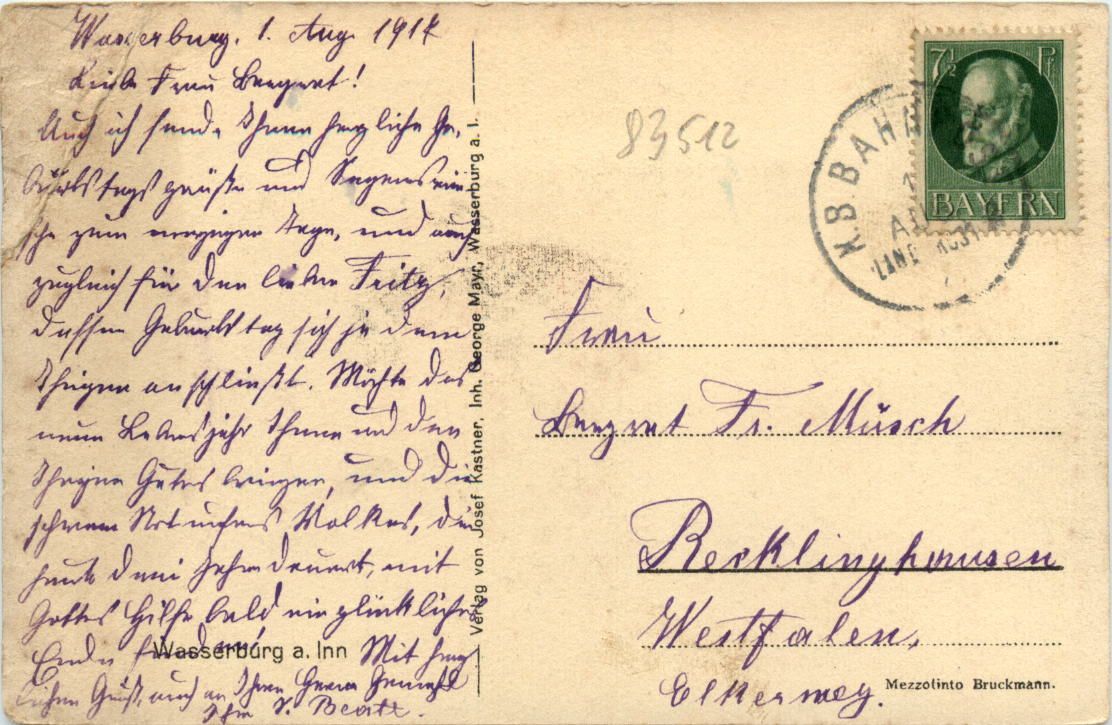 Wasserburg. 1. Aug. 1917
Liebe Frau Bergrat!
Auch ich sende Ihnen herzliche Ge-
burtstagsgrüße und Segenswün
sche zum morgigen Tage, und auch
zugleich für den lieben Fritz,
dessen Geburtstag sich ja dem
Ihrigen anschließt. Möchte das
neue Lebensjahr Ihnen und den
Ihrigen Gutes bringen, und die
schwere Not unseres Volkes, die
heute drei Jahre dauert, mit
Gottes Hilfe bald ein glückliches
Ende finden! Mit herz
lichen Gruß, auch an Ihren Herrn Gemahl
Ihr
Wasserburg a. Inn
Verlag von Josef Kastner, Inh. George Mayr, Wasserburg a. I.
83512
7½ Pf
BAYERN
K.B.BAHN
Frau
Bergrat Fr. Müsch
Recklinghausen
Westfalen,
Elkerweg.
Mezzotinto Bruckmann.